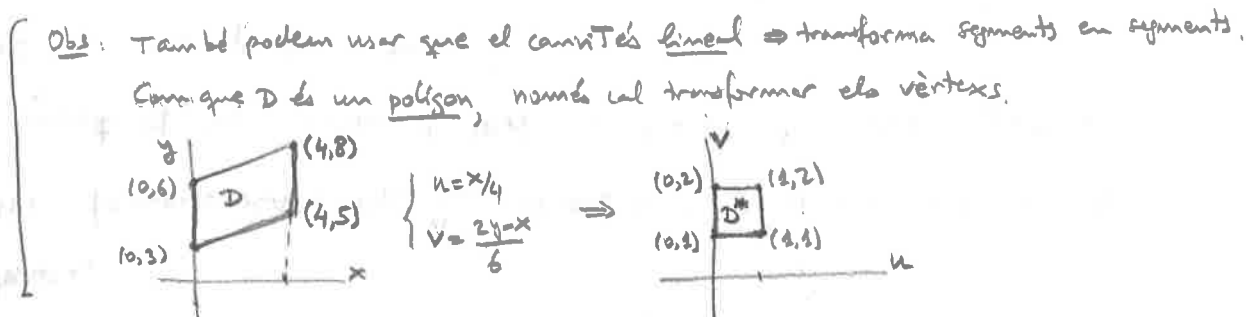 Obs: També podem usar que el canvi T és lineal ⇒ transforma segments en segments.
Com que D és un polígon, només cal transformar els vèrtexs.
y
(4,8)
(0,6)
D
(4,5)
(0,3)
x
{ u = x/4
v = (2y-x)/6
⇒
v
(0,2)
(1,2)
D*
(0,1)
(1,1)
u